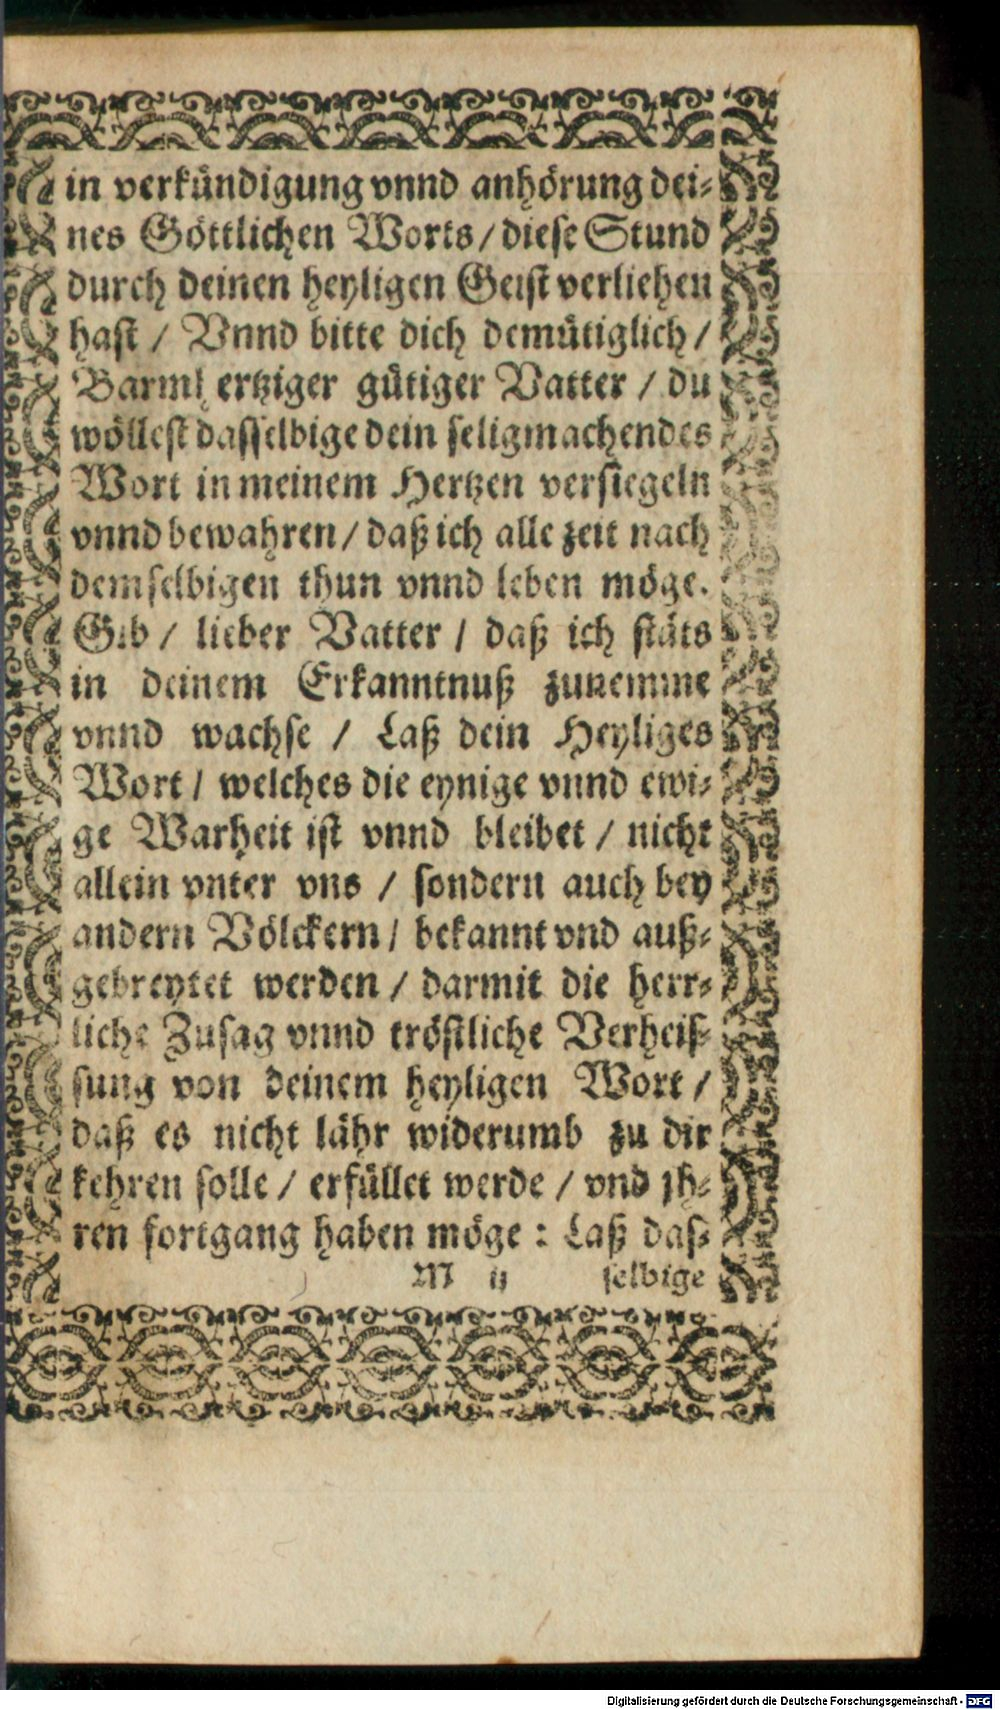 in verkündigung vnnd anhörung dei-
nes Göttlichen Worts / diese Stund
durch deinen heyligen Geist verliehen
hast / Vnnd bitte dich demütiglich /
Barmhertziger gütiger Vatter / du
wöllest dasselbige dein seligmachendes
Wort in meinem Hertzen versiegeln
vnnd bewahren / daß ich alle zeit nach
demselbigen thun vnnd leben möge.
Gib / lieber Vatter / daß ich stäts
in deinem Erkanntnuß zunemme
vnnd wachse / Laß dein Heyliges
Wort / welches die eynige vnnd ewi-
ge Warheit ist vnnd bleibet / nicht
allein vnter vns / sondern auch bey
andern Völckern / bekannt vnd auß-
gebreytet werden / darmit die herr-
liche Zusag vnnd tröstliche Verheis-
sung von deinem heyligen Wort /
daß es nicht lähr widerumb zu dir
kehren solle / erfüllet werde / vnd jh-
ren fortgang haben möge : Laß das-
M ij selbige
Digitalisierung gefördert durch die Deutsche Forschungsgemeinschaft - DFG